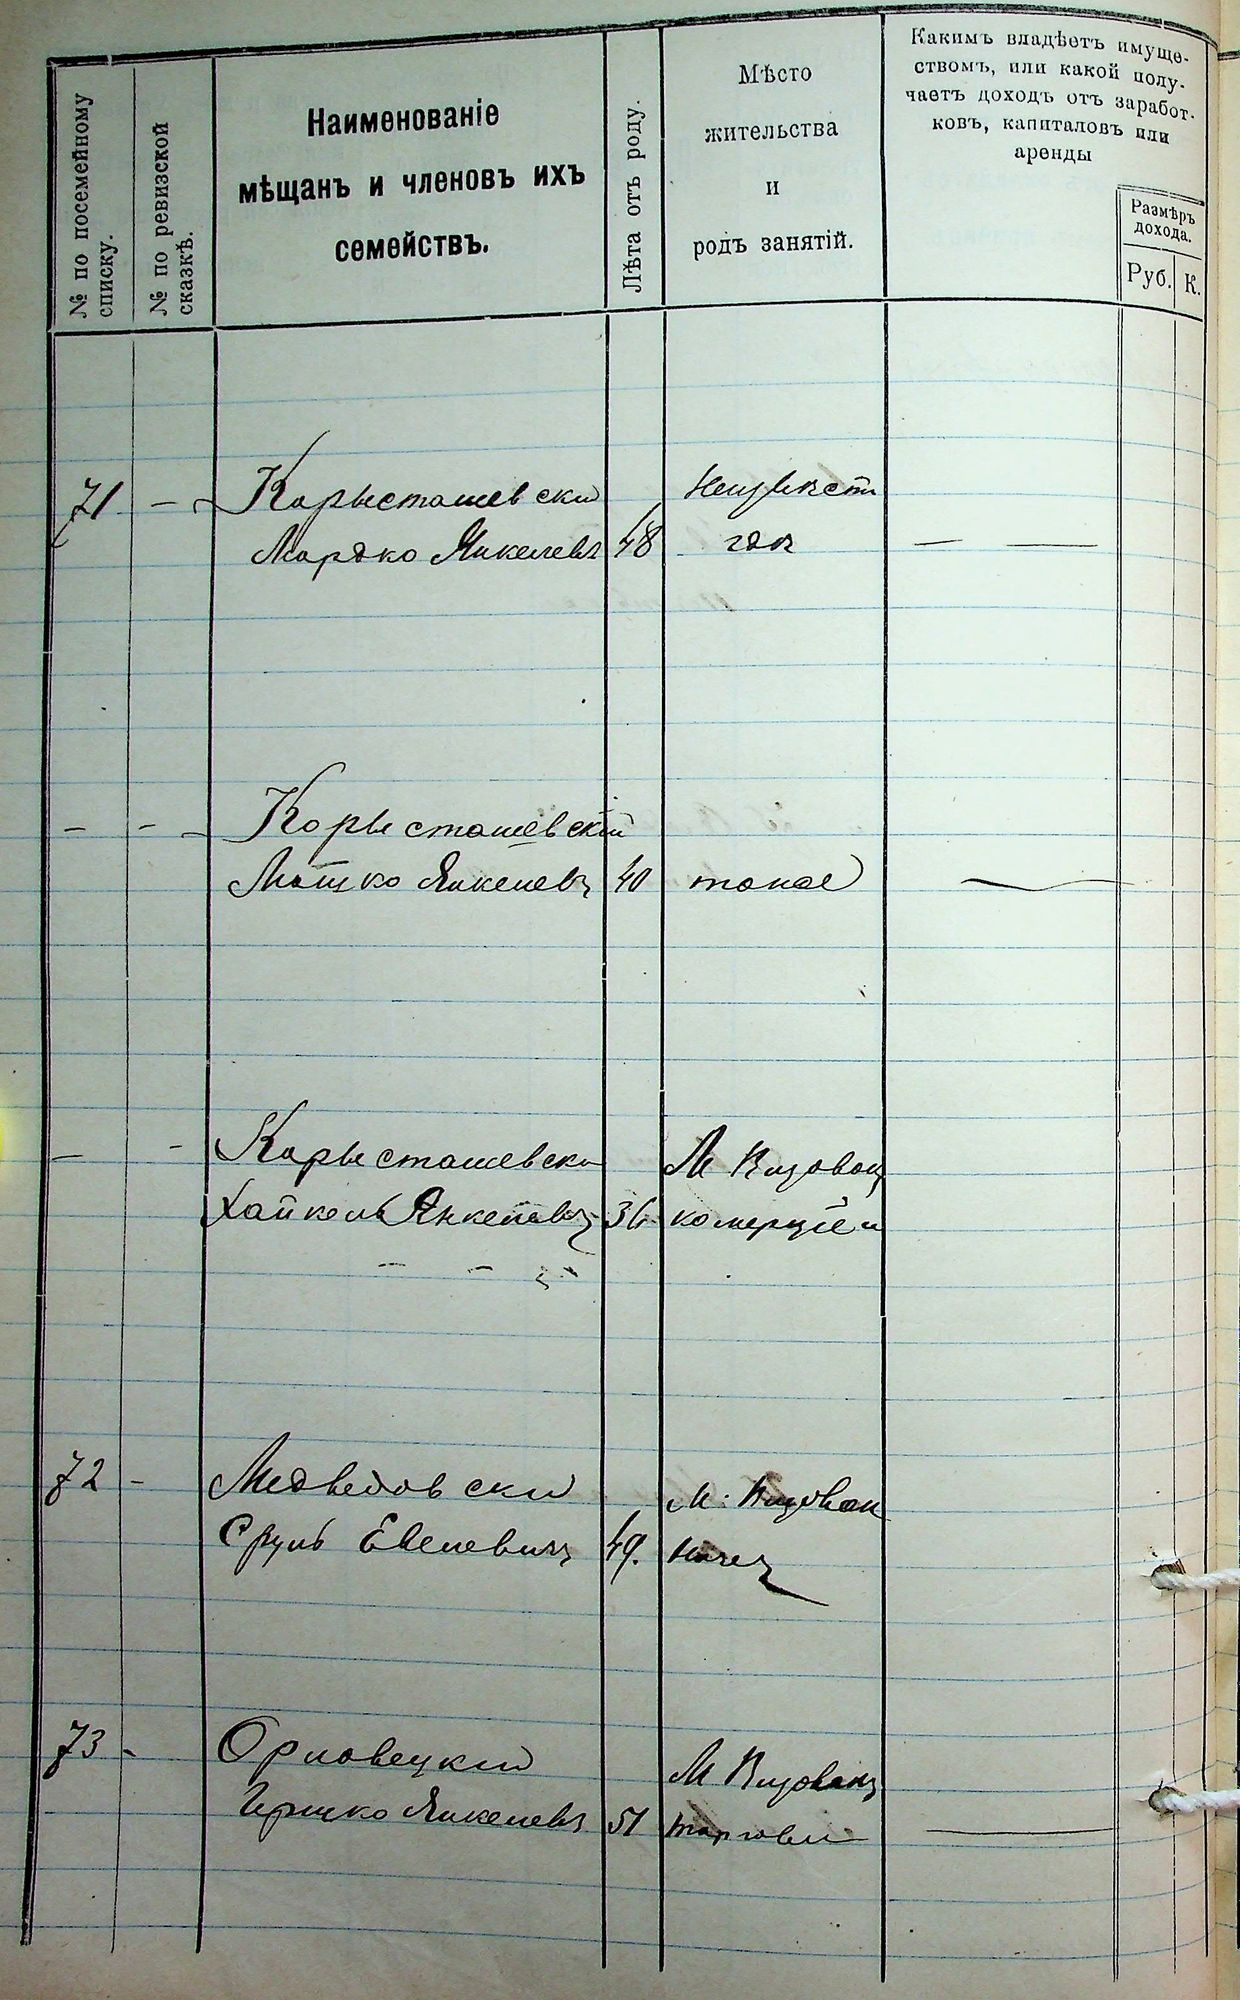 № по посемейному
списку.
№ по ревизской
сказкѣ.
Наименованіе
мѣщанъ и членовъ ихъ
семействъ.
Лѣта отъ роду.
Мѣсто
жительства
и
родъ занятій.
Какимъ владѣетъ имуще-
ствомъ, или какой полу-
чаетъ доходъ отъ заработ-
ковъ, капиталовъ или
аренды
Размѣръ
дохода.
Руб. К.
71 — Корысташевски
Неизвѣстн
Мордко Янкелевъ 48 гдѣ — —
— — — Корысташевскій
Мошко Янкелевъ 40 тоже —
— - Корысташевски М
Хайкель Янкелевъ 36
72 - Медведовский М.
Сруль Евелевичъ 49.
73 - Орловецкий М
Гершко Янкелевъ 51 торговли —